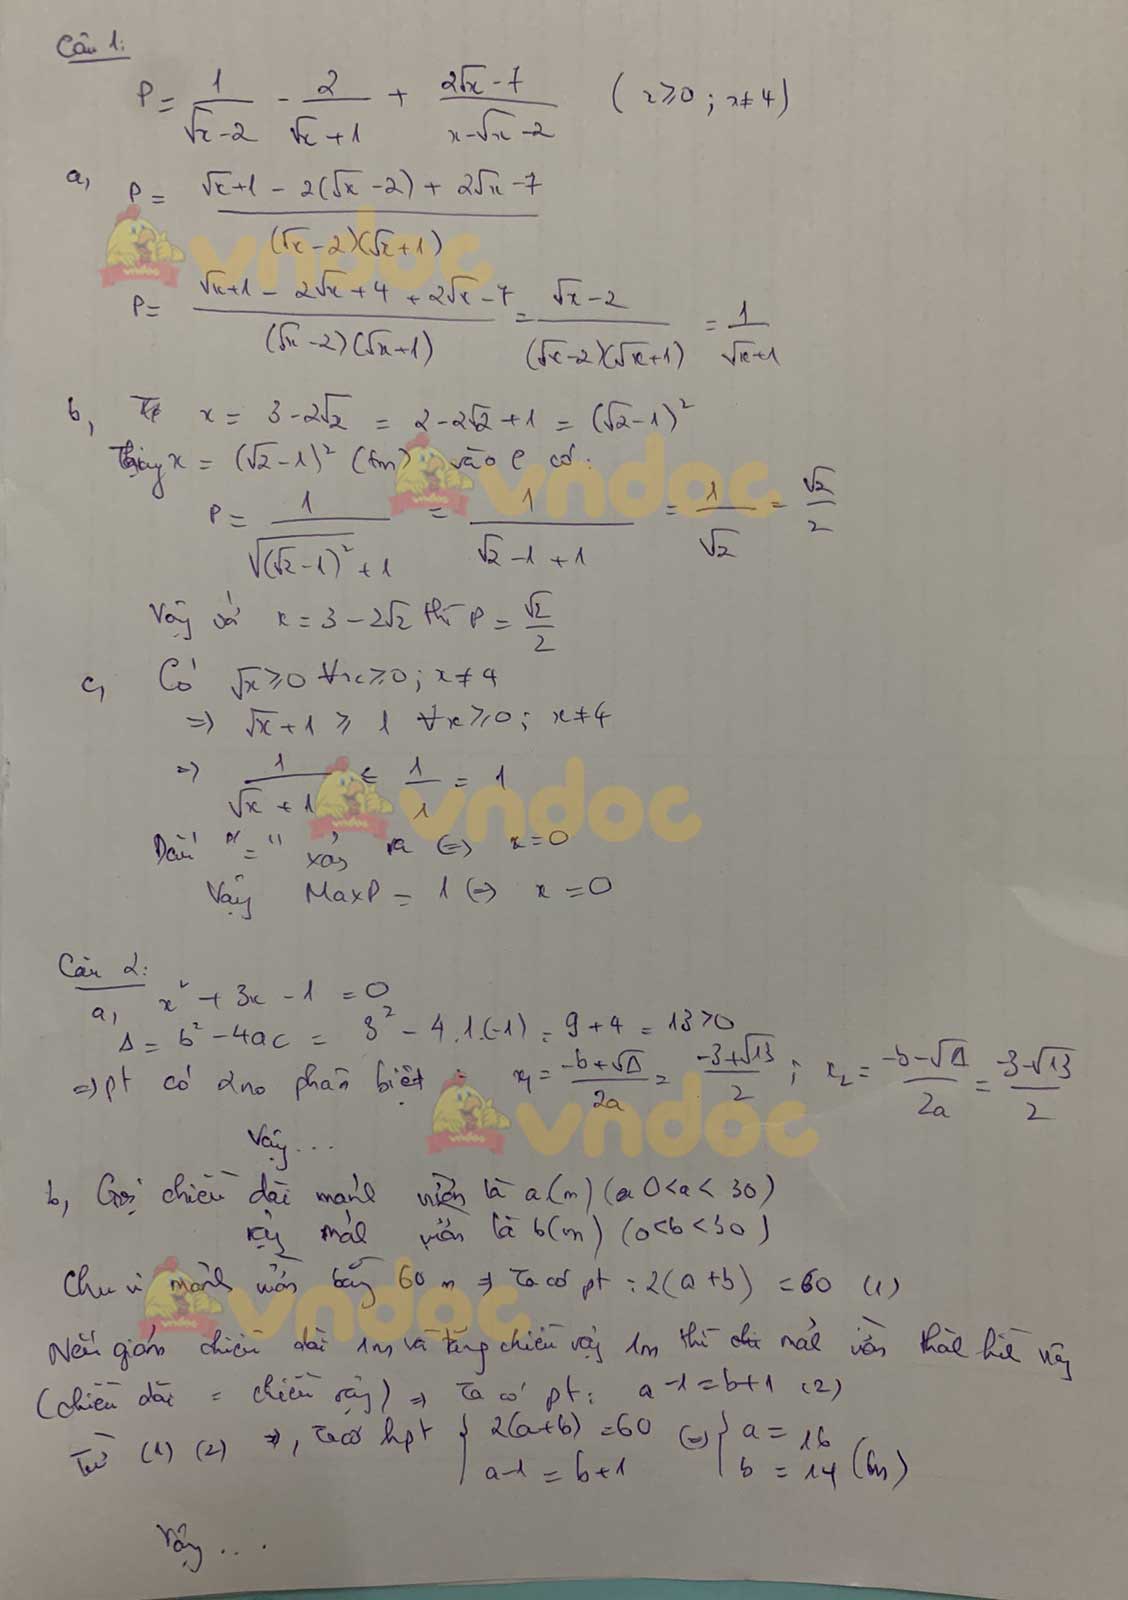 Câu 1:
P = 1/(√x-2) - 2/(√x+1) + (2√x-7)/(x-√x-2) (x≥0; x≠4)
a, P = (√x+1 - 2(√x-2) + 2√x-7)/((√x-2)(√x+1))
P = (√x+1 - 2√x+4 + 2√x-7)/((√x-2)(√x+1)) = (√x-2)/((√x-2)(√x+1)) = 1/(√x+1)
b, x = 3-2√2 = 2-2√2+1 = (√2-1)²
Thay x = (√2-1)² (tm) vào P có:
P = 1/(√(√2-1)² + 1) = 1/(√2-1+1) = 1/√2 = √2/2
Vậy với x = 3-2√2 thì P = √2/2
c, Có √x ≥ 0 ∀x≥0; x≠4
=> √x+1 ≥ 1 ∀x≥0; x≠4
=> 1/(√x+1) ≤ 1/1 = 1
Dấu "=" xảy ra <=> x=0
Vậy MaxP = 1 <=> x=0
Câu 2:
a, x² + 3x - 1 = 0
Δ = b² - 4ac = 3² - 4.1.(-1) = 9+4 = 13 > 0
=> pt có 2 no phân biệt: x₁ = (-b+√Δ)/2a = (-3+√13)/2; x₂ = (-b-√Δ)/2a = (-3-√13)/2
Vậy...
b, Gọi chiều dài mảnh vườn là a(m) (0<a<30)
rộng mảnh vườn là b(m) (0<b<30)
Chu vi mảnh vườn bằng 60 m => Ta có pt: 2(a+b) = 60 (1)
Nếu giảm chiều dài 1m và tăng chiều rộng 1m thì mảnh vườn thành hình vuông
(chiều dài = chiều rộng) => Ta có pt: a-1=b+1 (2)
Từ (1) (2) =>, ta có hpt { 2(a+b) = 60 ; a-1 = b+1 <=> { a = 16 ; b = 14 (tm)
Vậy...
vndoc
vndoc
vndoc
vndoc
vndoc